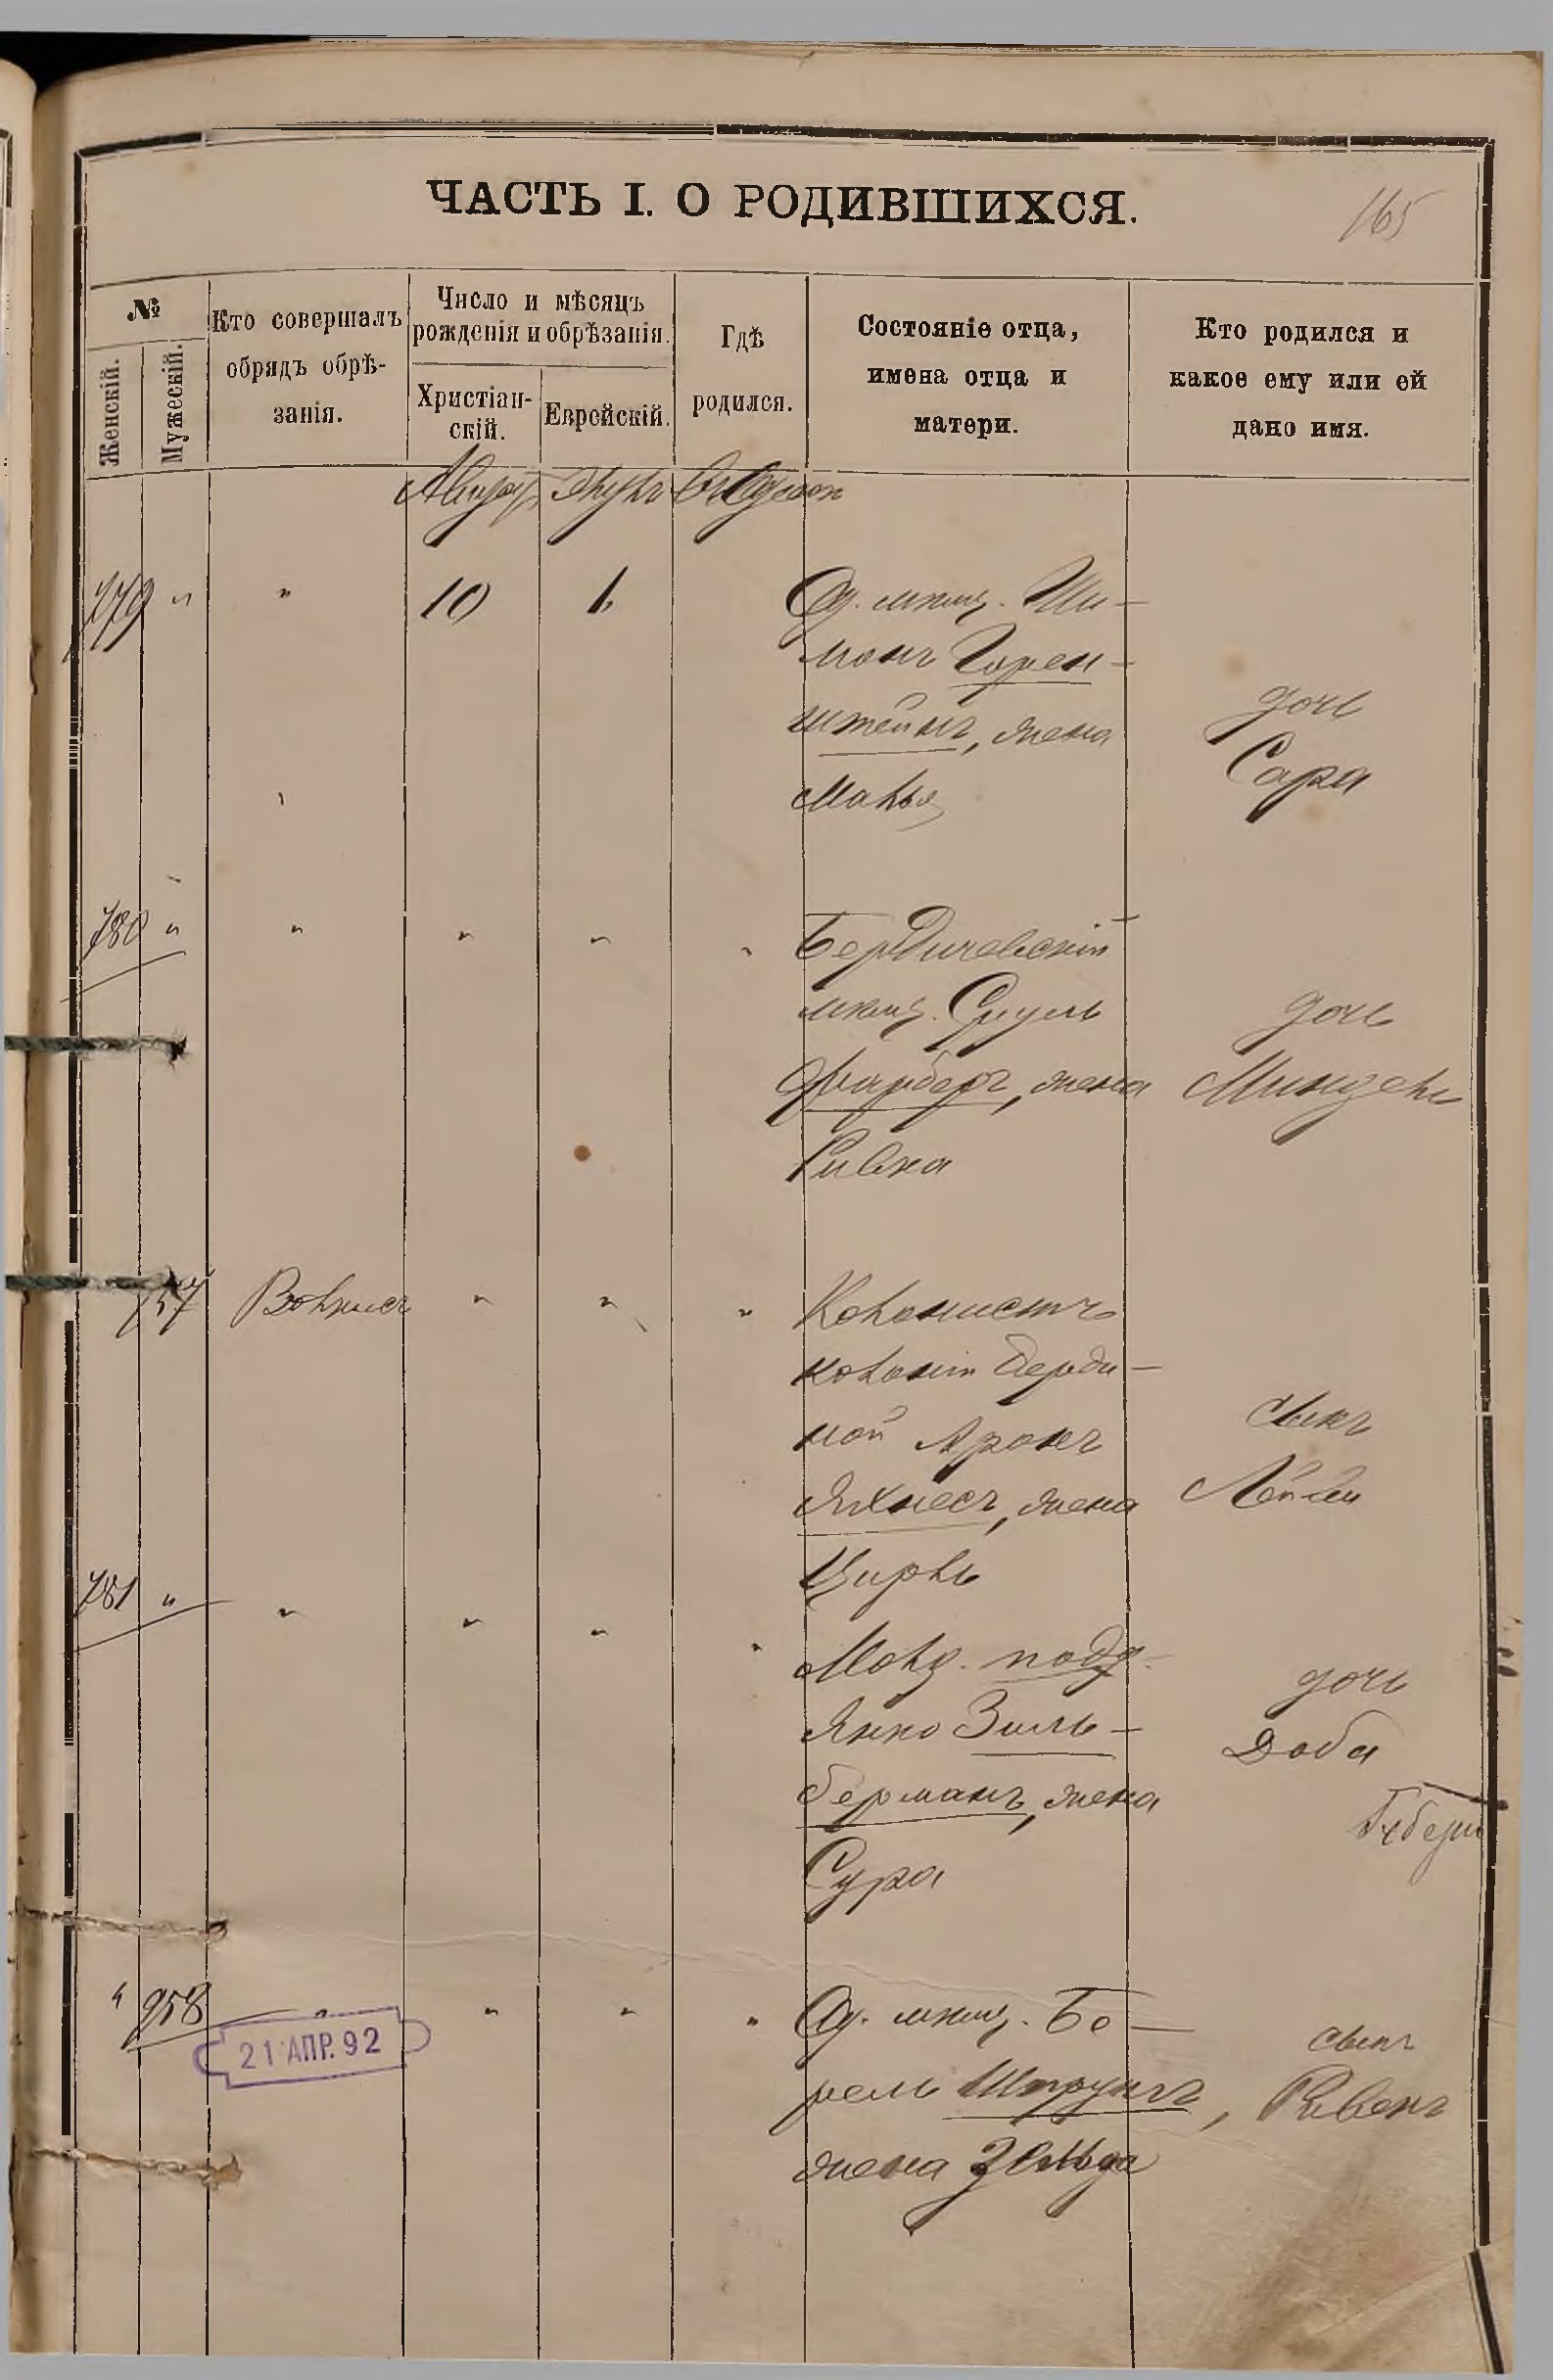 ЧАСТЬ I. О РОДИВШИХСЯ.
165
№
Женскій.
Мужескій.
Кто совершалъ
обрядъ обрѣ-
занія.
Число и мѣсяцъ
рожденія и обрѣзанія.
Христіан-
скій.
Еврейскій.
Гдѣ
родился.
Состояніе отца,
имена отца и
матери.
Кто родился и
какое ему или ей
дано имя.
Август. Элулъ въ Одессѣ
779 " " 10 6 Од. мѣщ. Ши-
монъ Горен-
штейнъ, жена
Малья
дочь
Сара
780 " " " " " Бердичевскій
мѣщ. Сруль
Фарберъ, жена
Ривка
дочь
Миндель
957 Вольнисъ " " " Колонистъ
колоніи
ной Аронъ
Яхнесъ, жена
Цирль
сынъ
Лейви
781 " " " " " Молд. подд.
Янко Зиль-
берманъ, жена
Сура
дочь
Доба
" 958 " " " " Од. мѣщ. Бе-
рель Штрунъ,
жена Зельда
сынъ
Рувенъ
21 АПР. 92